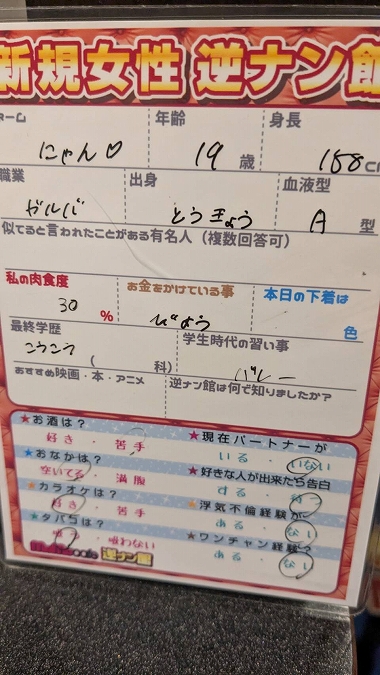 新規女性 逆ナン館
ーム 年齢 身長
にゃん♡ 19歳 158c
職業 出身 血液型
ガルバ とうきょう A型
似てると言われたことがある有名人（複数回答可）
私の肉食度 お金をかけている事 本日の下着は
30% びよう 色
最終学歴 学生時代の習い事
こうこう（ 科） バレー
おすすめ映画・本・アニメ 逆ナン館は何で知りましたか？
★お酒は？ ★現在パートナーが
好き・苦手 いる・いない
★おなかは？ ★好きな人が出来たら告白
空いてる・満腹 する・待つ
★カラオケは？ ★浮気不倫経験が
好き・苦手 ある・ない
★タバコは？ ★ワンチャン経験？
吸う・吸わない ある・ない
逆ナン館